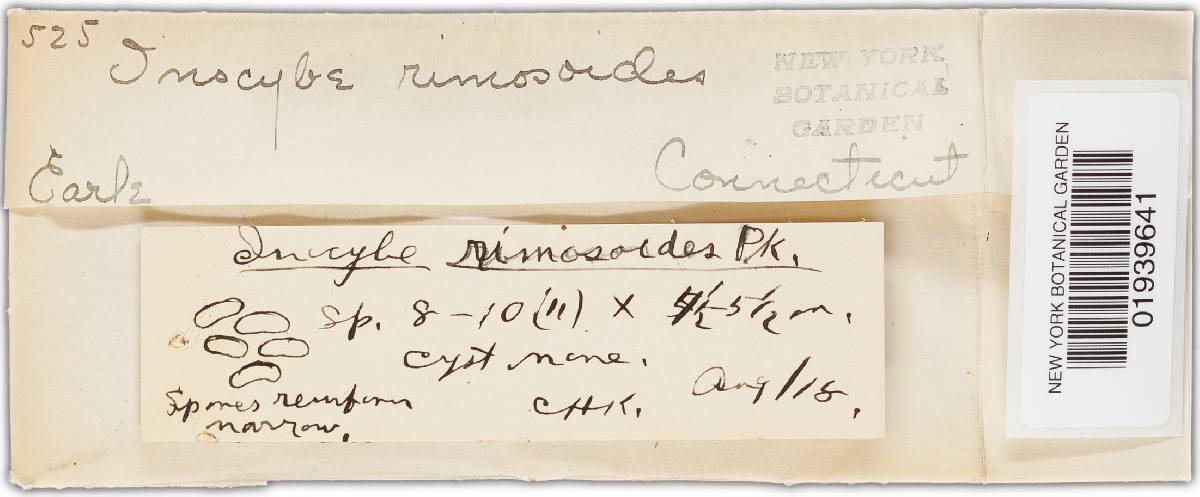 525
Inocybe rimosoides
NEW YORK
BOTANICAL
GARDEN
Earle
Connecticut
Inocybe rimosoides Pk.
Sp. 8–10 (11) × 4½–5½ m.
Cyst none.
Spores reniform
narrow.
CHK.
Aug/18.
NEW YORK BOTANICAL GARDEN
01939641